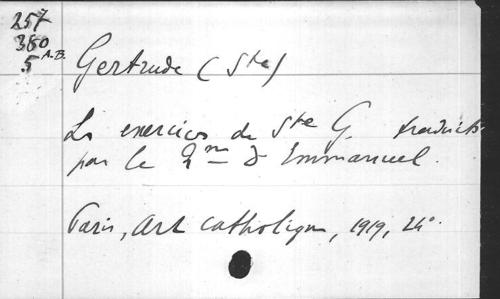 257
380
5 A.B.
Gertrude (Ste)
Les exercices de Ste G. traduits
par le R. Dom Emmanuel.
Paris, Art catholique, 1919, 24°.